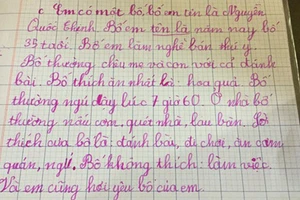 c Em có một bố, bố em tên là Nguyễn
Quốc Thịnh. Bố em tên là năm nay bố
35 tuổi. Bố em làm nghề bán thú y.
Bố thường chịu mẹ và con vời cả đánh
bài. Bố thích ăn nhất là: hoa quả. Bố
thường ngủ dậy lúc 7 giờ 60. Ở nhà bố
thường nấu cơm, quét nhà, lau bàn. Sở
thích của bố là: đánh bài, đi chơi, ăn cơm
quán, ngủ. Bố không thích: làm việc.
Và em cũng hơi yêu bố của em.